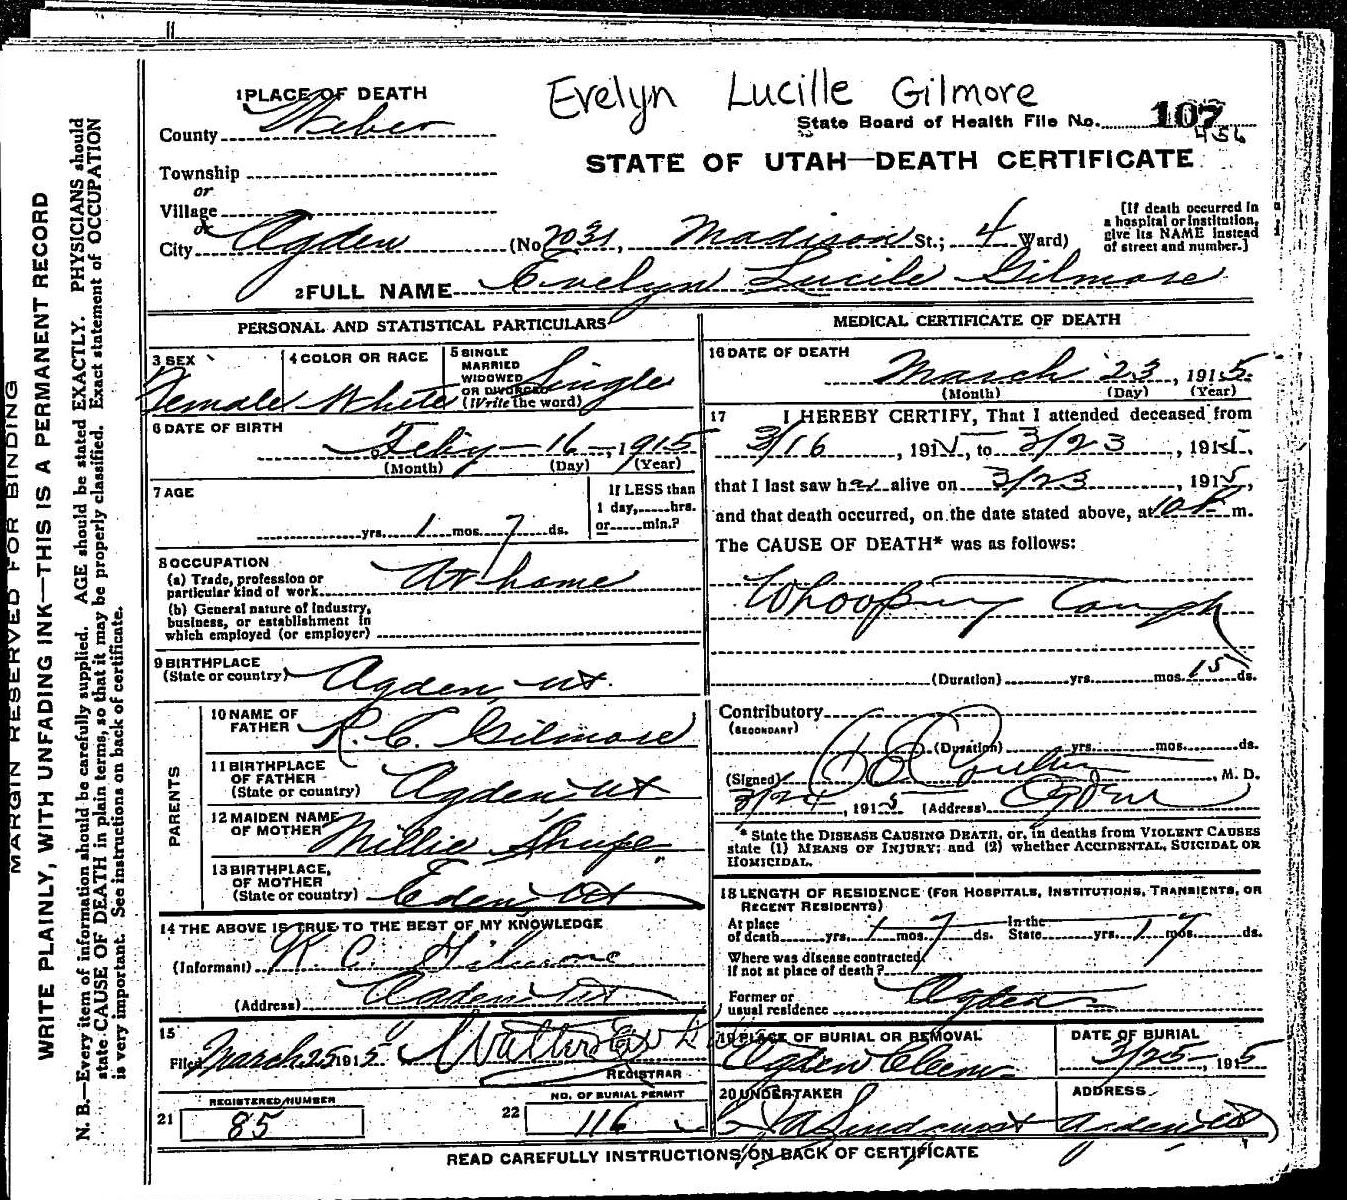 Evelyn Lucille Gilmore
1 PLACE OF DEATH
County Weber
State Board of Health File No. 107
456
STATE OF UTAH—DEATH CERTIFICATE
Township
or
Village
or
City Ogden (No. 2031, Madison St.; 4 Ward)
[If death occurred in
a hospital or institution,
give its NAME instead
of street and number.]
2 FULL NAME Evelyn Lucile Gilmore
PERSONAL AND STATISTICAL PARTICULARS
3 SEX Female
4 COLOR OR RACE White
5 SINGLE
MARRIED
WIDOWED
OR DIVORCED
(Write the word) Single
6 DATE OF BIRTH
Feby 16, 1915
(Month) (Day) (Year)
7 AGE
yrs. 1 mos. 7 ds.
If LESS than
1 day, hrs.
or min.?
8 OCCUPATION
(a) Trade, profession or
particular kind of work At home
(b) General nature of Industry,
business, or establishment in
which employed (or employer)
9 BIRTHPLACE
(State or country) Ogden, Ut.
PARENTS
10 NAME OF
FATHER R. C. Gilmore
11 BIRTHPLACE
OF FATHER
(State or country) Ogden Ut
12 MAIDEN NAME
OF MOTHER Millie Shupe
13 BIRTHPLACE,
OF MOTHER
(State or country) Eden, Ut
14 THE ABOVE IS TRUE TO THE BEST OF MY KNOWLEDGE
(Informant) R. C. Gilmore
(Address) Ogden Ut
15
Filed March 25 1915
REGISTRAR
21 REGISTERED NUMBER
85
22 NO. OF BURIAL PERMIT
116
MEDICAL CERTIFICATE OF DEATH
16 DATE OF DEATH
March 23, 1915
(Month) (Day) (Year)
17 I HEREBY CERTIFY, That I attended deceased from
3/16, 1915, to 3/23, 1915,
that I last saw her alive on 3/23, 1915,
and that death occurred, on the date stated above, at 10 P. m.
The CAUSE OF DEATH* was as follows:
Whooping Cough
(Duration) yrs. mos. 15 ds.
Contributory
(SECONDARY)
(Duration) yrs. mos. ds.
(Signed) M. D.
3/24, 1915 (Address) Ogden
* State the DISEASE CAUSING DEATH, or, in deaths from VIOLENT CAUSES
state (1) MEANS OF INJURY; and (2) whether ACCIDENTAL, SUICIDAL OR
HOMICIDAL.
18 LENGTH OF RESIDENCE (FOR HOSPITALS, INSTITUTIONS, TRANSIENTS, OR
RECENT RESIDENTS)
At place
of death yrs. 1 mos. 7 ds. In the
State yrs. 1 mos. 7 ds.
Where was disease contracted,
if not at place of death?
Former or
usual residence Ogden
19 PLACE OF BURIAL OR REMOVAL
Ogden Cem
DATE OF BURIAL
3/25, 1915
20 UNDERTAKER
Lindquist
ADDRESS
Ogden Ut
READ CAREFULLY INSTRUCTIONS ON BACK OF CERTIFICATE
MARGIN RESERVED FOR BINDING
WRITE PLAINLY, WITH UNFADING INK—THIS IS A PERMANENT RECORD
N. B.—Every item of information should be carefully supplied. AGE should be stated EXACTLY. PHYSICIANS should
state CAUSE OF DEATH in plain terms, so that it may be properly classified. Exact statement of OCCUPATION
is very important. See instructions on back of certificate.